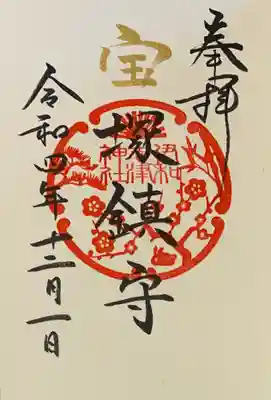 奉拝
宝塚鎮守
和
津
神社
令和四年十二月一日